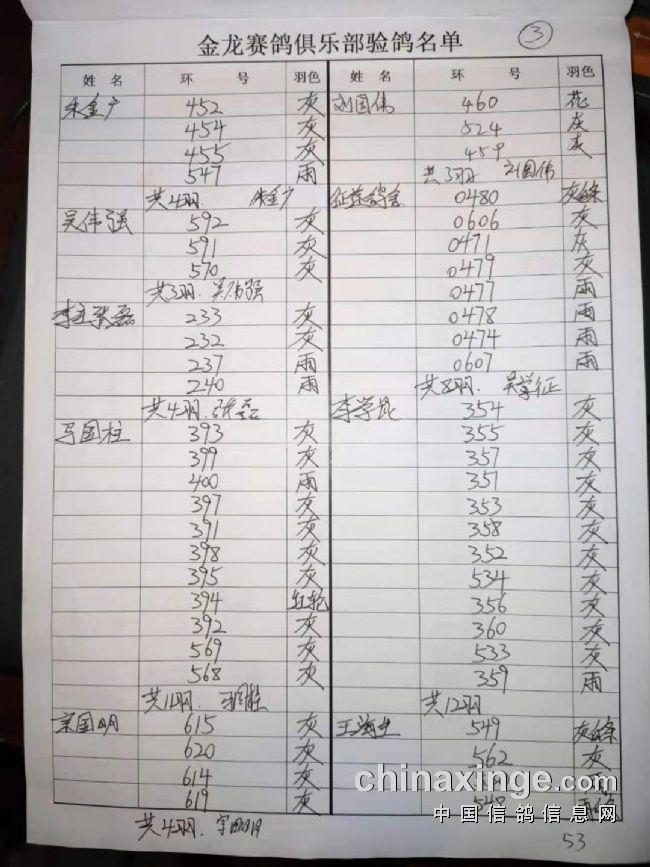 金龙赛鸽俱乐部验鸽名单
③
姓 名 环 号 羽色
朱金广 452 灰
454 灰
455 灰
547 雨
共4羽. 朱金广
吴伟强 592 灰
591 灰
570 灰
共3羽. 吴伟强
张磊 233 灰
232 灰
237 雨
240 雨
共4羽. 张磊
马国柱 393 灰
399 灰
400 雨
397 灰
391 灰
398 灰
395 灰
394 红轮
392 灰
569 灰
568 灰
共11羽. 马国柱
国明 615 灰
620 灰
614 灰
619 灰
共4羽.
姓 名 环 号 羽色
刘国伟 460 花
524 灰
459 灰
共3羽 刘国伟
0480 灰条
0606 灰
0471 灰
0479 灰
0477 雨
0478 雨
0474 雨
0607 雨
共8羽. 吴学征
李学昆 354 灰
355 灰
357 灰
351 灰
353 灰
358 灰
352 灰
534 灰
356 灰
360 灰
533 灰
359 雨
共12羽
王海生 549 灰条
562 灰
548
53
chinaxinge.com
中国信鸽信息网